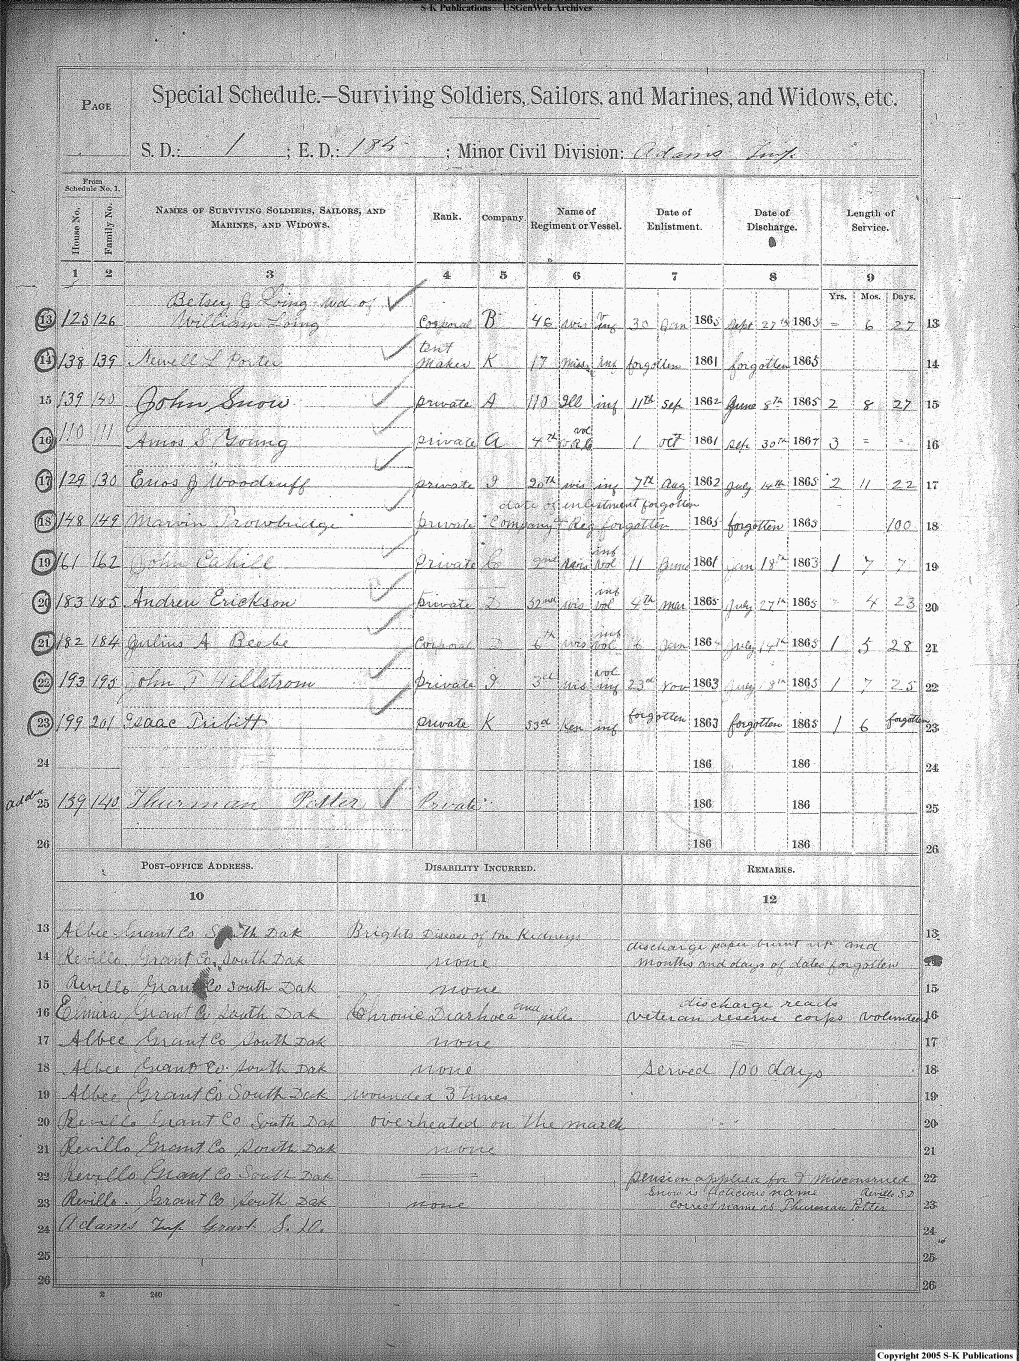 S-K Publications - USGenWeb Archives
PAGE
Special Schedule.—Surviving Soldiers, Sailors, and Marines, and Widows, etc.
S. D.: 1 ; E. D.: 185 ; Minor Civil Division: Adams Twp.
From Schedule No. 1.
House No. Family No. NAMES OF SURVIVING SOLDIERS, SAILORS, AND MARINES, AND WIDOWS. Rank. Company. Name of Regiment or Vessel. Date of Enlistment. Date of Discharge. Length of Service.
1 2 3 4 5 6 7 8 9
Yrs. Mos. Days.
Betsey C Loing wd of
13 125 126 William Loing Corporal B 46 wis v inf 30 Jan 1865 Sept 27th 1865 = 6 27 13
tent
14 138 139 Newell L Porter Maker K 17 forgotten 1861 forgotten 1865 14
15 139 140 John Snow private A 110 Ill inf 11th Sep 1862 June 8th 1865 2 8 27 15
vol
16 110 111 Amos S Young private A 4th 1 oct 1861 sep 30th 1864 3 = = 16
17 129 130 Enos J Woodruff private I 20th wis inf 7th Aug 1862 July 14th 1865 2 11 22 17
date of enlistment forgotten
18 148 149 Marvin Trowbridge private Company & Reg forgotten 1865 forgotten 1865 100 18
inf
19 161 162 John Cahill Private 2nd wis vol 11 June 1861 Jan 18th 1863 1 7 7 19
inf
20 183 185 Andrew Erickson private D 52nd wis vol 4th mar 1865 July 27th 1865 4 23 20
inf
21 182 184 Julius A Beebe Corporal D 6th wis vol 6 Jan 1864 July 14th 1865 1 5 28 21
vol
22 193 195 John T Hillstrom private I 3rd wis inf 23rd Nov 1863 July 18th 1865 1 7 25 22
23 199 201 Isaac Tribitt private K 53rd Ken inf forgotten 1863 forgotten 1865 1 6 forgotten 23
24 186 186 24
25 139 140 Thurman Potter Private 186 186 25
26 186 186 26
POST-OFFICE ADDRESS. DISABILITY INCURRED. REMARKS.
10 11 12
13 Albee Grant Co South Dak Brights Disease of the Kidneys 13
discharge paper burnt up and
14 Revillo Grant Co, South Dak none months and days of dates forgotten
15 Revillo Grant Co South Dak none 15
discharge reads
16 Grant Co South Dak Chronic Diarhoea and piles veteran reserve corps volunteers 16
17 Albee Grant Co South Dak none = 17
18 Albee Grant Co. South Dak none Served 100 days 18
19 Albee Grant Co South Dak wounded 3 times 19
20 Revillo Grant Co South Dak overheated on the march 20
21 Revillo Grant Co South Dak none 21
22 Revillo Grant Co South Dak pension applied for 22
Snow is ficticious name Revillo S.D
23 Revillo. Grant Co South Dak none Correct name is Thurman Potter 23
24 Adams Twp Grant S. D. 24
25 25
26 26
2 240
Copyright 2005 S-K Publications